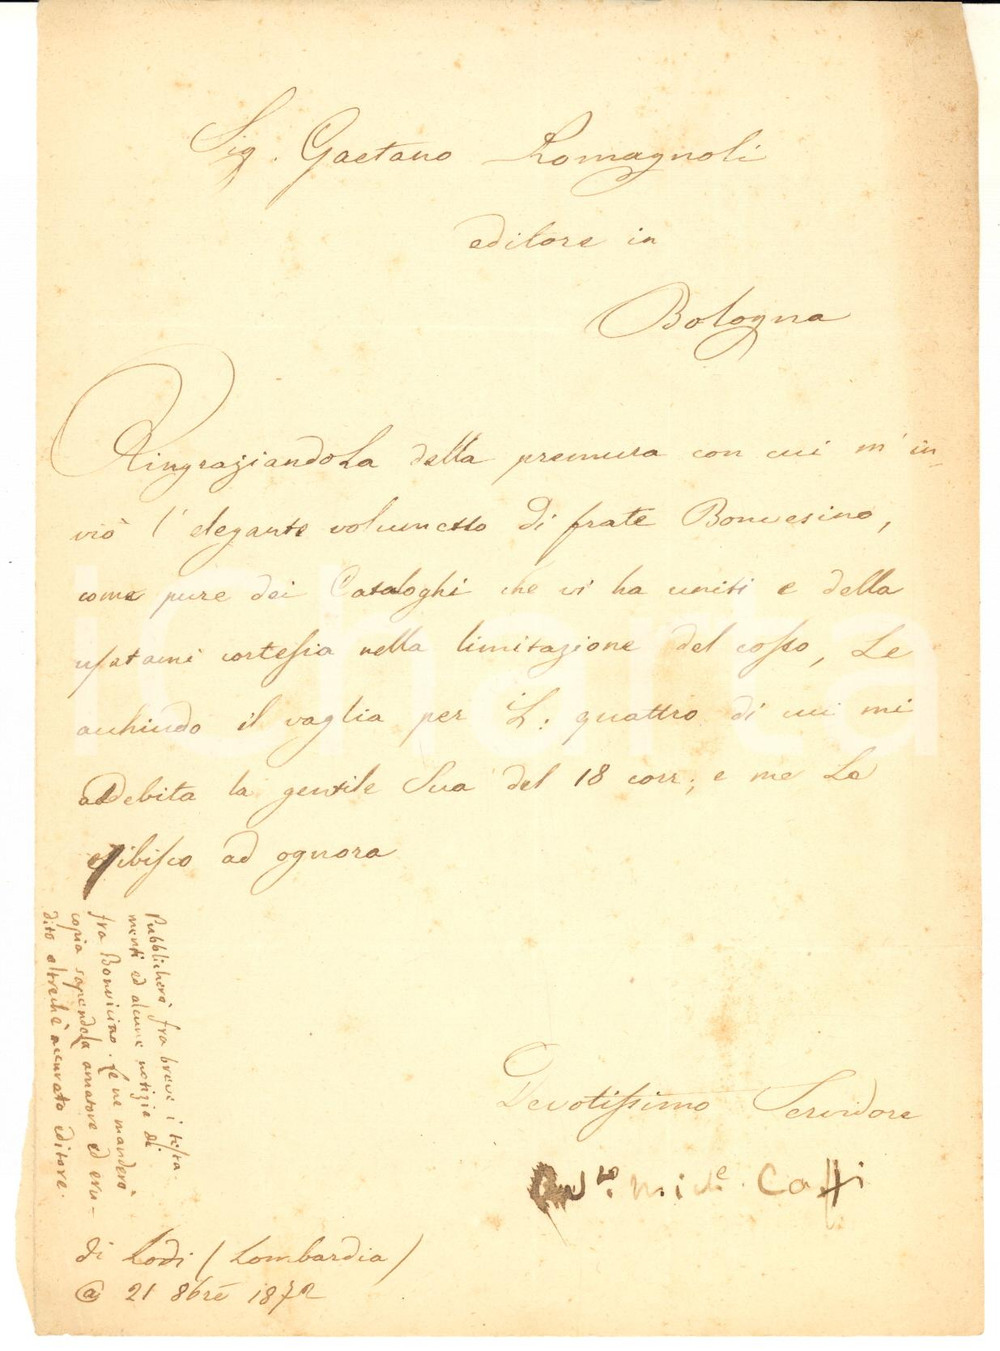 Sig. Gaetano Romagnoli
editore in
Bologna
RingraziandoLa della premura con cui m' in-
viò l' elegante volumetto di frate Bonvesino,
come pure dei Cataloghi che vi ha uniti e della
usatami cortesia nella limitazione del costo, Le
acchiudo il vaglia per L: quattro di cui mi
addebita la gentile Sua del 18 corr; e me Le
esibisco ad ognora
Pubblicherò fra breve i testa-
menti ed alcune notizie di
fra Bonvicino. Le ne manderò
copia sapendola amatore ed eru-
dito oltreché accurato editore.
Devotissimo Servidore
Caffi
di Lodi (Lombardia)
@ 21 8bre 1872
iCharta